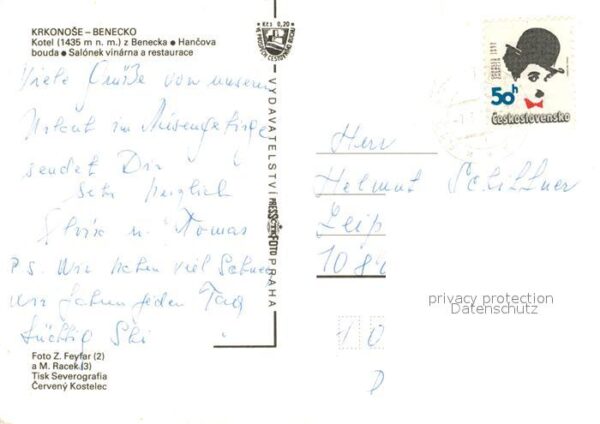 KRKONOŠE – BENECKO
Kotel (1435 m n. m.) z Benecka ● Hančova
bouda ● Salónek vinárna a restaurace
Viele Grüße von unserem
Urlaub im Riesengebirge
sendet Dir
sehr herzlich
u. Tomas
P.S. Wir haben viel Schnee
wir fahren jeden Tag
tüchtig Ski
Foto Z. Feyfar (2)
a M. Racek (3)
Tisk Severografia
Červený Kostelec
Kčs 0,20
VE PROSPĚCH CESTOVNÍHO RUCHU
VYDAVATELSTVÍ PRESSFOTO PRAHA
50h
Československo
Herr
Helmut
Leip
privacy protection
Datenschutz